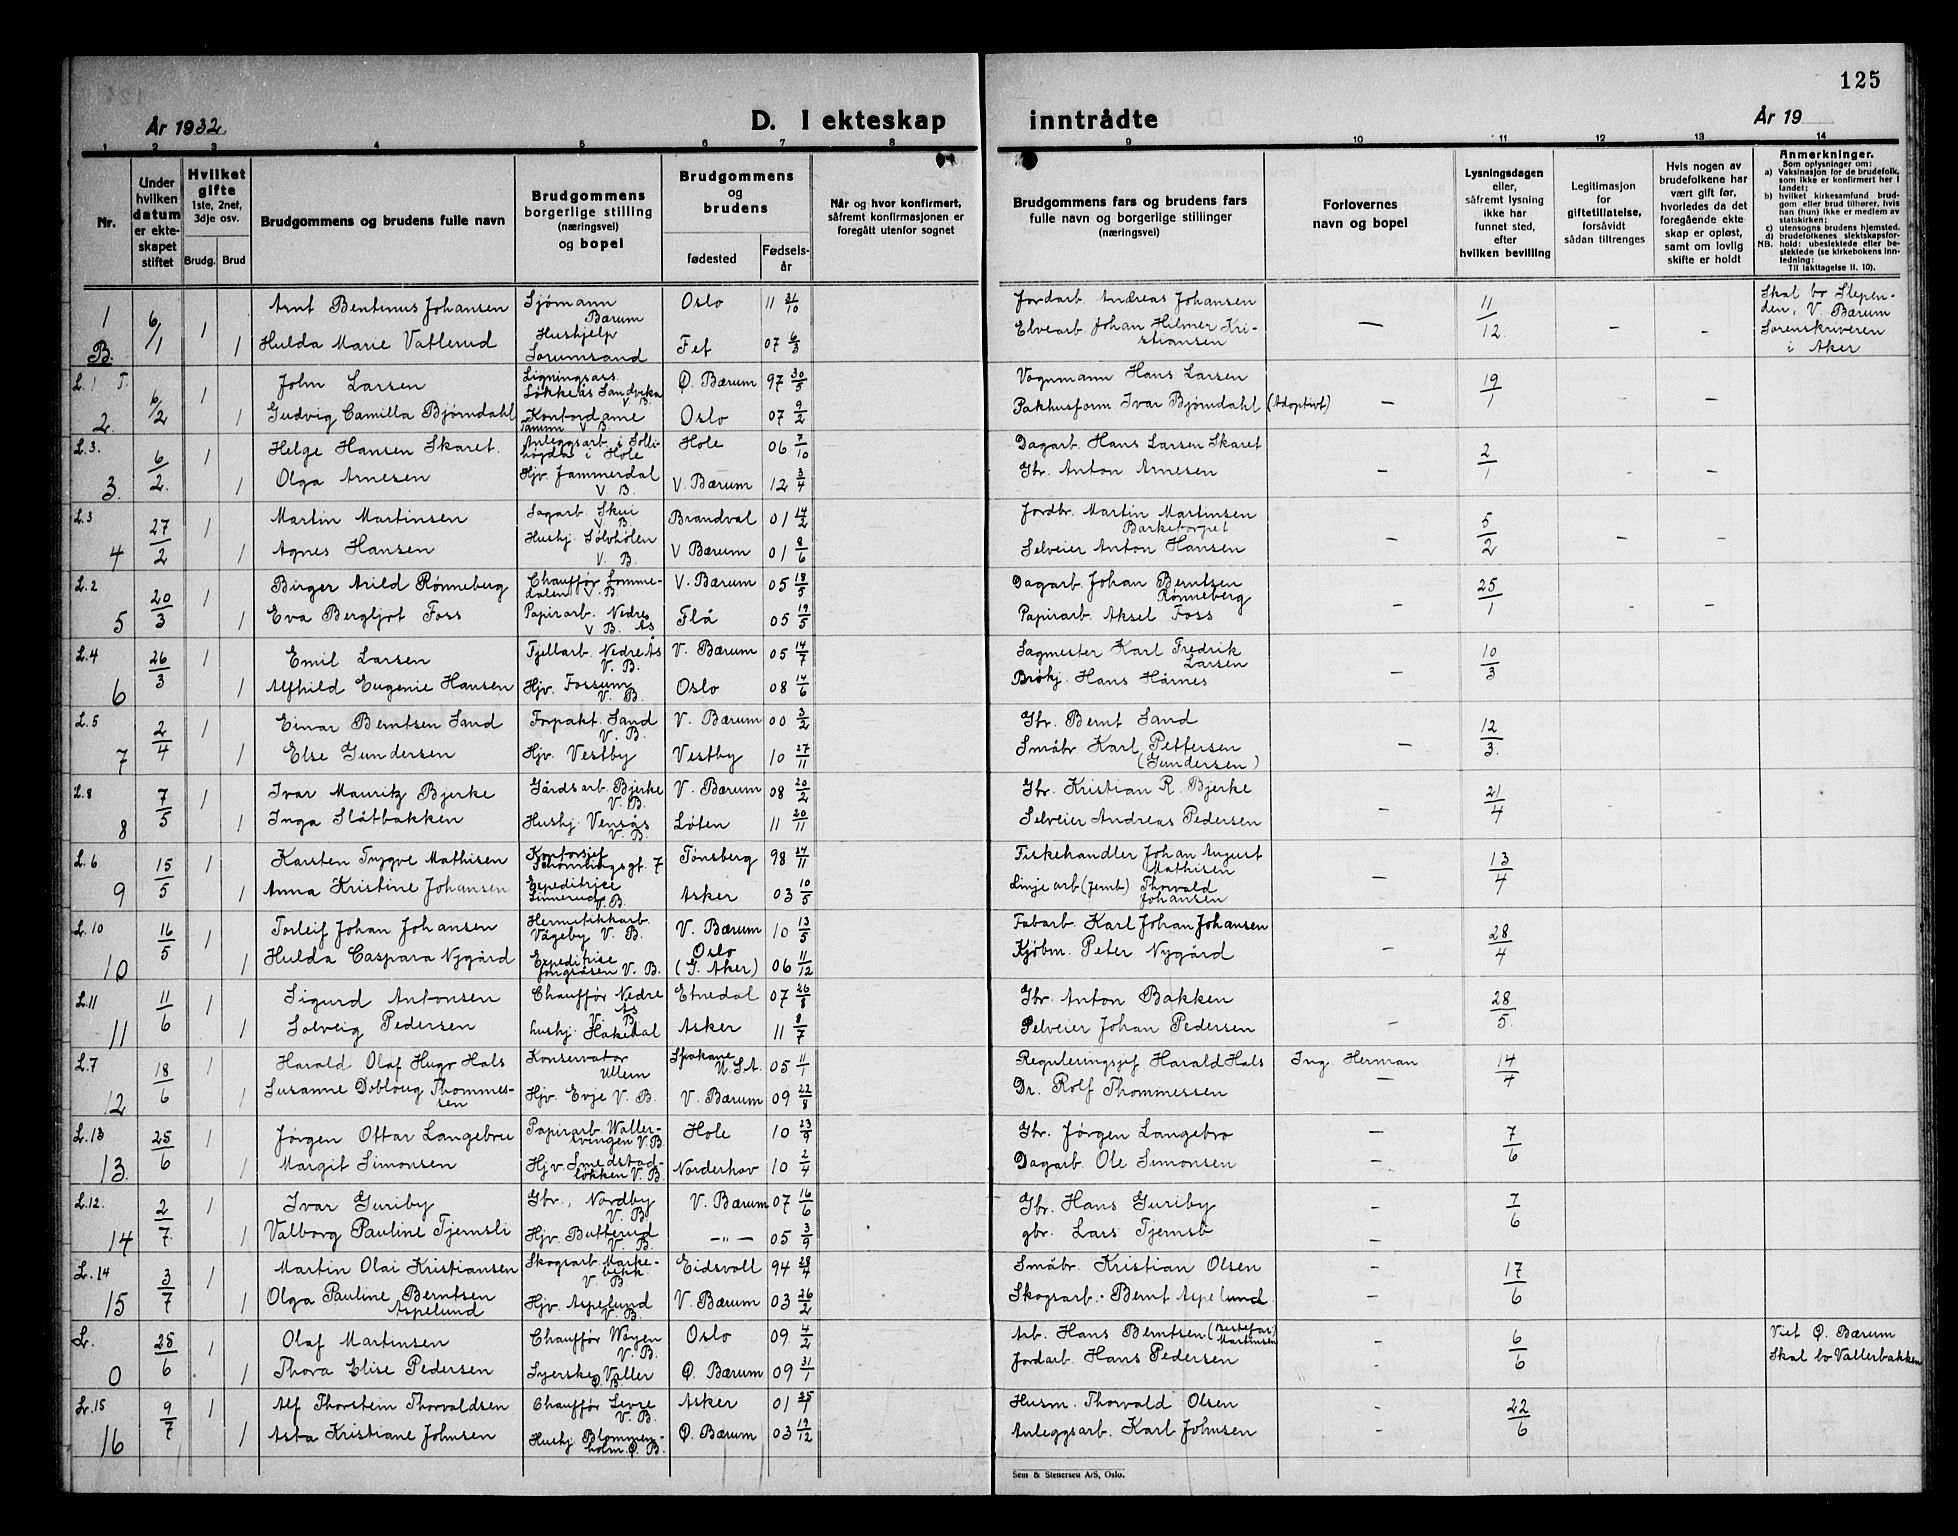 125
År 1932.
D. I ekteskap inntrådte
År 19
1 2 3 4 5 6 7 8 9 10 11 12 13 14
Nr.
Under hvilken datum er ekte-skapet stiftet
Hvilket gifte 1ste, 2net, 3dje osv.
Brudg. Brud
Brudgommens og brudens fulle navn
Brudgommens borgerlige stilling (næringsvei) og bopel
Brudgommens og brudens
fødested
Fødsels-år
Når og hvor konfirmert, såfremt konfirmasjonen er foregått utenfor sognet
Brudgommens fars og brudens fars fulle navn og borgerlige stillinger (næringsvei)
Forlovernes navn og bopel
Lysningsdagen eller, såfremt lysning ikke har funnet sted, efter hvilken bevilling
Legitimasjon for giftetillatelse, forsåvidt sådan tiltrenges
Hvis nogen av brudefolkene har vært gift før, hvorledes da det foregående ekte-skap er opløst, samt om lovlig skifte er holdt
Anmerkninger.
Som oplysninger om:
a) Vaksinasjon for de brudefolk, som ikke er konfirmert her i landet;
b) hvilket kirkesamfund brud-gom eller brud tilhører, hvis han (hun) ikke er medlem av statskirken;
c) utensogns brudens hjemsted.
d) brudefolkenes slektskapsfor-hold: ubeslektede eller be-slektede (se kirkebokens inn-ledning;
NB. Til iakttagelse II. 10).
1 B. 6/1 1 Arnt Bentinus Johansen Sjømann Bærum Oslo 11 31/10 Jordarb. Andreas Johansen 11/12 Skal bo Stepen-den, V. Bærum
1 Hulda Marie Vatlerud Hushjelp Sorumsand Fet 07 6/3 Elvearb. Johan Hilmer Kri-stiansen — Sorenskriveren i Aker
L.1 T. 2. 6/2 1 John Larsen Ligningsass. Løkkeås Sandvika V. B. Ø. Bærum 97 30/5 Vognmann Hans Larsen 19/1
1 Gudvig Camilla Bjørndahl Kontordame Tanum V B Oslo 07 9/2 Pakhusform. Ivar Bjørndahl (Adoptivt) —
L.3. 3. 6/2. 1 Helge Hansen Skaret. Anleggsarb. i Solli-høgda i Hole Hole 06 7/10 Dagarb. Hans Larsen Skaret 2/1
1 Olga Arnesen Hjv. Jammerdal V B. V. Bærum 12 3/4 Gbr. Anton Arnesen —
L.3 4 27/2 1 Martin Martinsen Sagarb. Skui V. B. Brandval 01 14/2 Jordbr. Martin Martinsen Barketorpet 5/2
1 Agnes Hansen Hushj. Sølvhølen V. B. V Bærum 01 8/6 Selveier Anton Hansen —
L.2 5 20/3 1 Birger Arild Rønneberg Chauffør Lomme-dalen V. B. V. Bærum 05 18/5 Dagarb. Johan Berntsen Rønneberg 25/1
1 Eva Bergljot Foss Papirarb. Nedre Ås V B. Flå 05 19/5 Papirarb. Aksel Foss —
L.4 6 26/3 1 Emil Larsen Fjellarb. Nedre Ås V. B. V. Bærum 05 14/7 Sagmester Karl Fredrik Larsen 10/3
1 Alfhild Eugenie Hansen Hjv. Fossum V. B. Oslo 08 14/6 Hans Hårnes —
L.5 7 2/4 1 Einar Berntsen Sand Forpakt. Sand V. B. V. Bærum 00 3/2 Gbr. Bernt Sand 12/3.
1 Else Gundersen Hjv. Vestby Vestby 10 27/11 Småbr. Karl Pettersen (Gundersen) —
L.8 8 7/5 1 Ivar Mauritz Bjerke Gårdsarb. Bjerke V. B. V. Bærum 08 20/2 Gbr. Kristian R. Bjerke 21/4
1 Inga Slåtbakken Hushj. Vensås V. B. Løten 11 20/11 Selveier Andreas Pedersen —
L.6 9 15/5 1 Karsten Trygve Mathisen Kontorsjef Tønsberg 98 24/11 Fiskehandler Johan August Mathisen 13/4
1 Anna Kristine Johansen Expeditrice V. B. Asker 03 10/5 Linjearb (Jernb) Thorvald Johansen —
L.10 10 16/5 1 Torleif Johan Johansen Hermetikkarb. Vågeby V. B. V. Bærum 10 13/5 Fabarb. Karl Johan Johansen 28/4
1 Hulda Caspara Nygård Expeditrise Jongsåsen V. B. Oslo (G. Aker) 06 11/12 Kjøbm. Peter Nygård —
L.11 11 11/6 1 Sigurd Antonsen Chauffør Nedre Ås V. B. Etnedal 07 26/8 Gbr. Anton Bakken 28/5.
1 Solveig Pedersen hushj. Hakedal Asker 11 8/7 Selveier Johan Pedersen —
L.7 12 18/6 1 Harald Olaf Hugo Hals Konservator Ullern Spokane U.S.A. 05 11/1 Reguleringsjef Harald Hals Ing. Herman 14/4
1 Susanne Dobloug Thommes-sen Hjv. Evje V. B. V. Bærum 09 22/8 Dr. Rolf Thommessen —
L.13 13. 25/6 1 Jørgen Ottar Langebru Papirarb. Waller-svingen V. B. Hole 10 23/9 Gbr. Jørgen Langebro — 7/6
1 Margit Simonsen Hjv. Smedstad-løkken V. B. Norderhov 10 2/4 Dagarb. Ole Simonsen —
L.12. 14 2/7. 1 Ivar Guriby Gbr., Nordby V. B V. Bærum 07 16/6 Gbr. Hans Guriby 7/6
1 Valborg Pauline Tjernsli Hjv. Butterud V. B. —"— 05 3/9 gbr. Lars —
L.14 15 3/7 1 Martin Olai Kristiansen Skogsarb. V B Eidsvoll 94 28/4 Småbr. Kristian Olsen — 17/6
1 Olga Pauline Berntsen Aspelund Hjv. Aspelund V. B. V. Bærum 03 26/2 Skogsarb. Bernt Aspelund. —
L. 0 25/6 1 Olaf Martinsen Chauffør Wøyen V. B. Oslo 09 4/2 Arb. Hans Berntsen (Bestefar) Martinsen 6/6 Viet Ø. Bærum
1 Thora Elise Pedersen Syerske Valler Ø. B. Ø. Bærum 09 31/1 Jordarb. Hans Pedersen Skal bo Vallerbakken
L.15 16 9/7 1 Alf Thorstein Thorvaldsen Chauffør Levre V. B. Asker 01 Husm. Thorvald Olsen 22/6
1 Asta Kristiane Johnsen Hushj. Blommen-holm Ø. B. Ø. Bærum 03 19/12 Anleggsarb. Karl Johnsen
Sem & Stenersen A/S, Oslo.